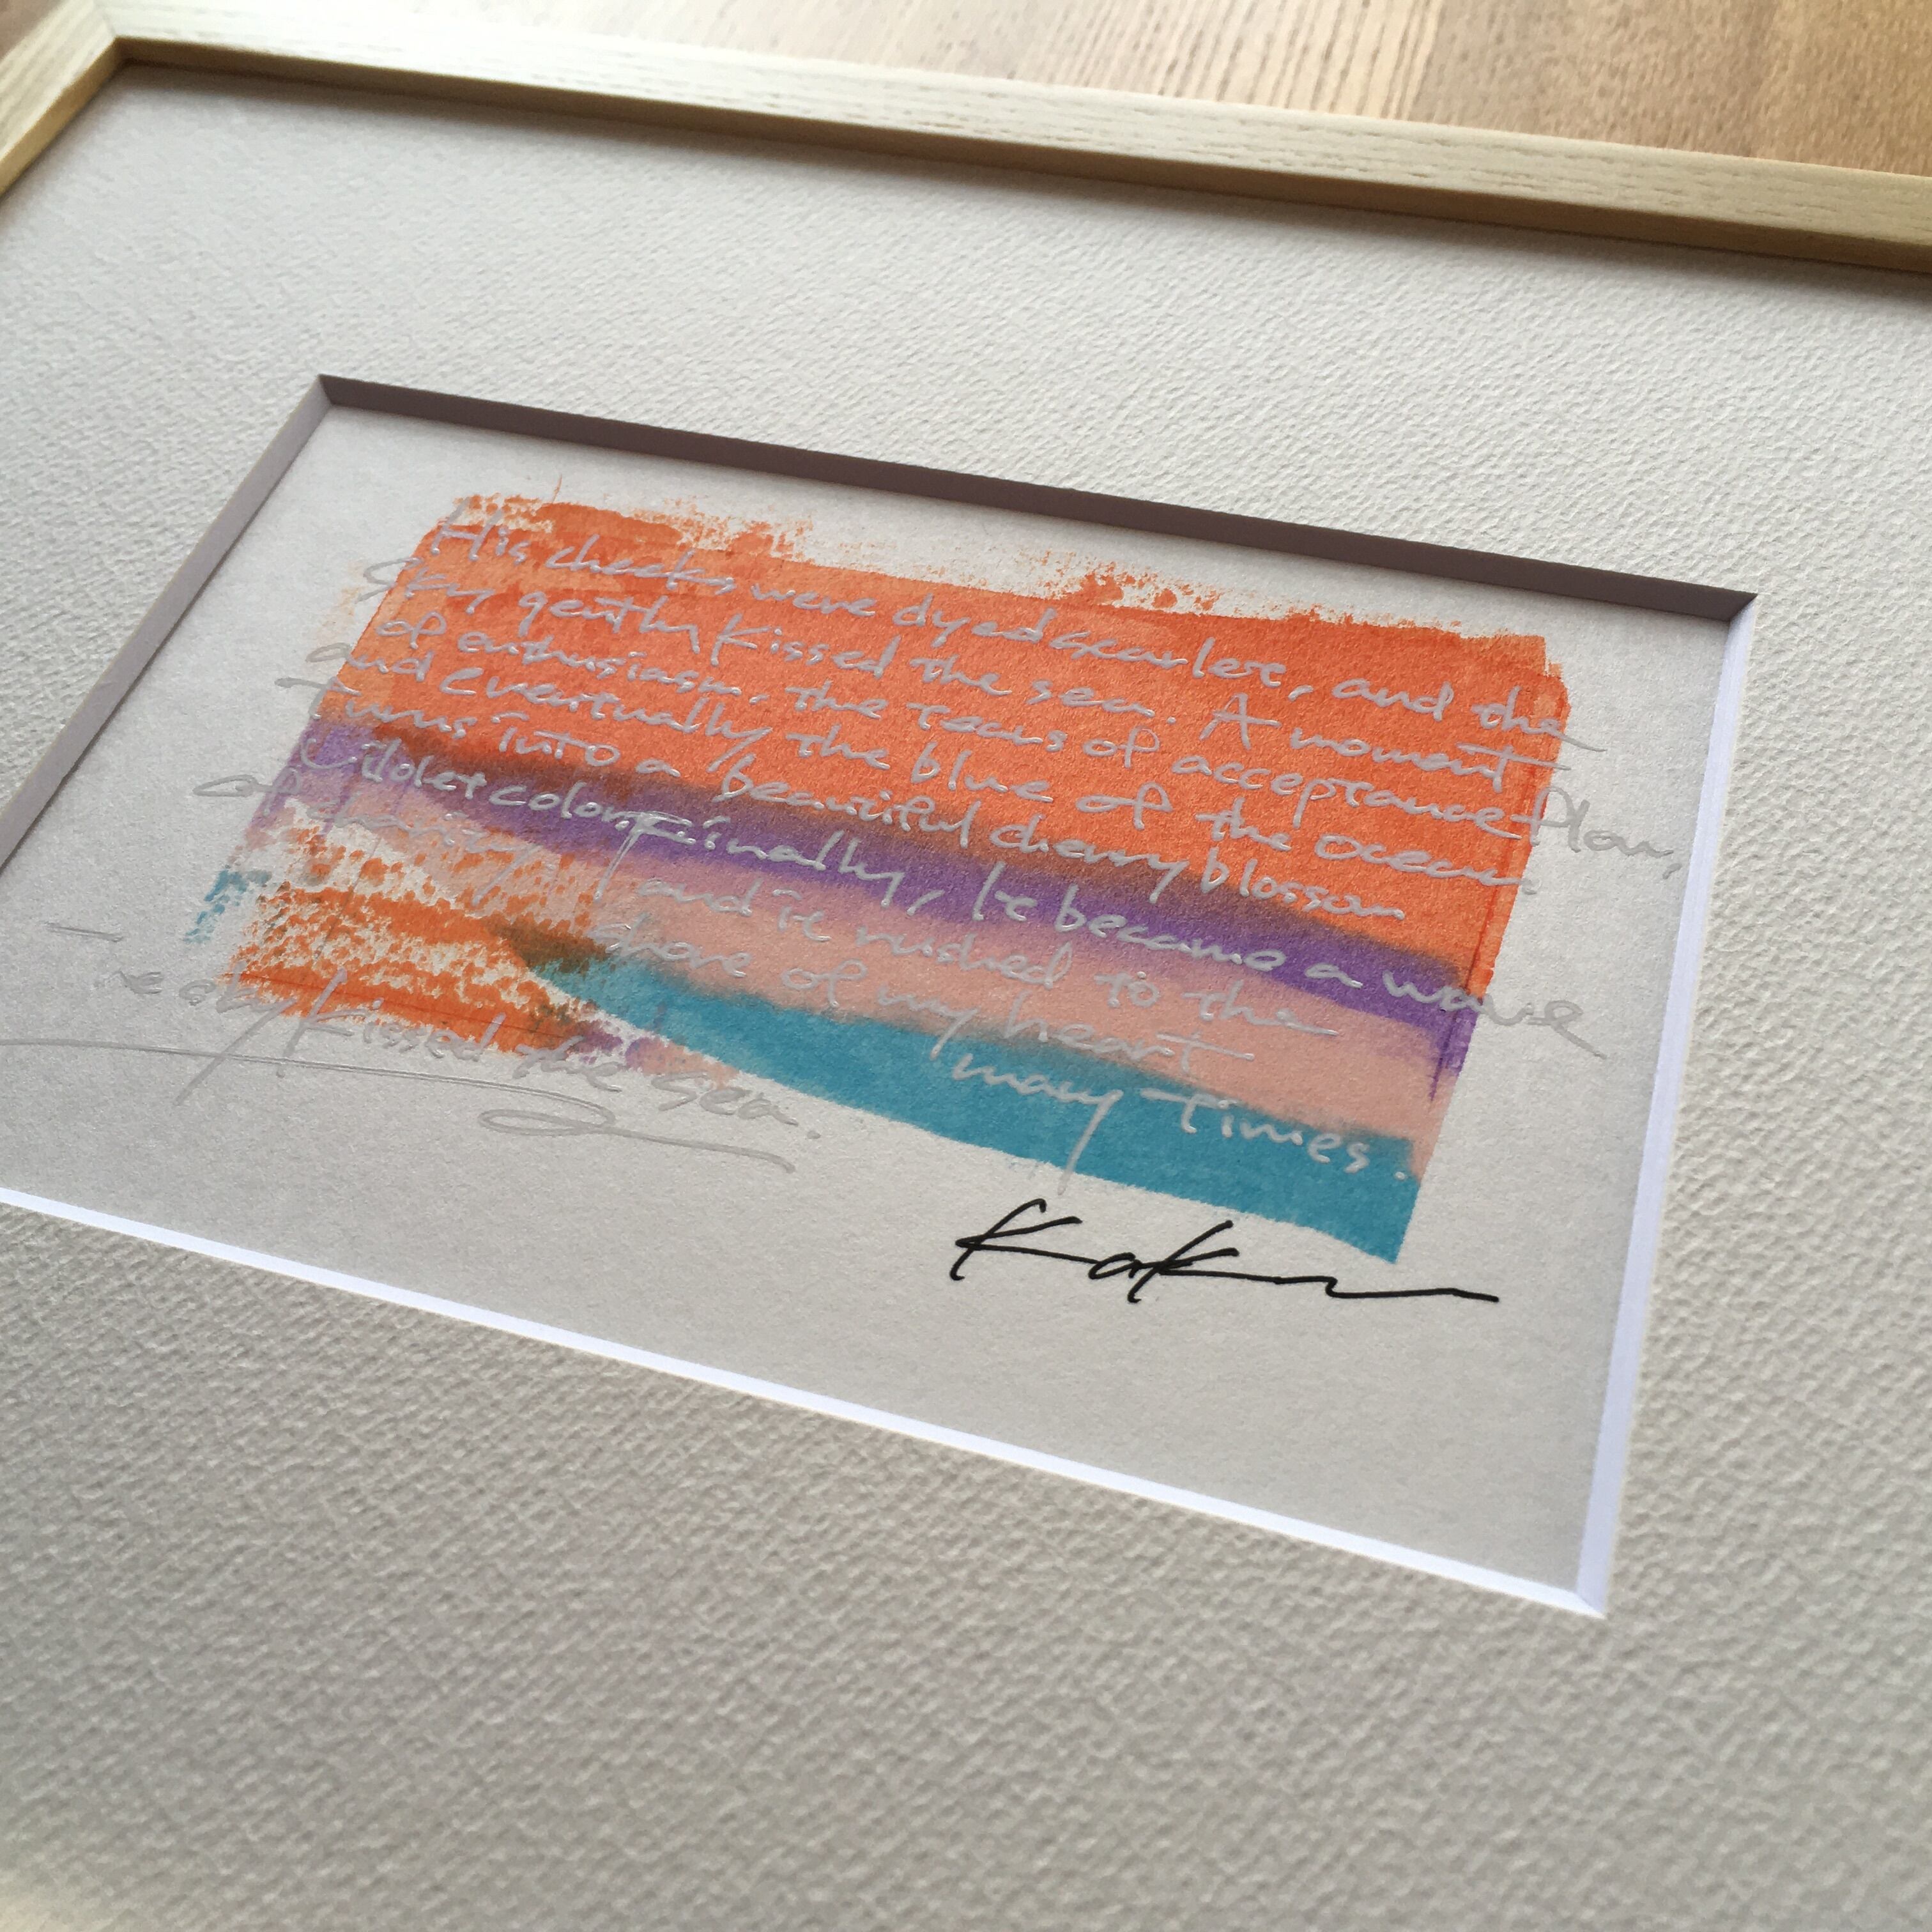 His cheeks were dyed scarlet, and the
sky gently kissed the sea. A moment
of enthusiasm, the tears of acceptance flow,
and eventually the blue of the ocean
turns into a beautiful cherry blossom
violet color. Finally, it became a wave
of charity, and it rushed to the
shore of my heart
many times.
The sky kissed the sea.
Kaku